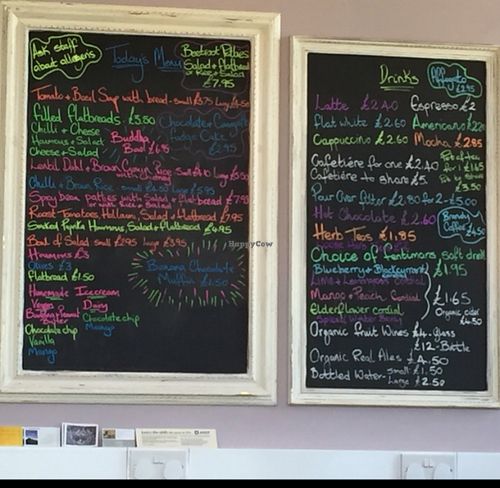 Ask staff
about allergens
Today's Menu
Beetroot Patties
Salad + Flatbread
or Rice + Salad
£7.95
Tomato + Basil Soup with bread - small £3.75 Lrg £4.50
Filled Flatbreads. £5.50
Chilli + Cheese
Houmous + Salad
Cheese + Salad
Buddha
Bowl £6.95
Chocolate +
Fudge Cake
£2.95
Lentil Dahl + Brown Rice small £4.50 Large £5.50
Chilli + Brown Rice small £4.50 Large £5.95
Spicy Bean patties with Salad + Flatbread £7.95
or with Rice + Salad
Roast Tomatoes, Halloumi, Salad + Flatbread £7.95
Smoked Paprika Hummus, Salad + Flatbread £4.95
Bowl of Salad small £2.95 large £3.95
Hummus £3
Olives £3
Flatbread £1.50
Banana Chocolate
Muffin £1.50
Homemade Icecream
Vegan
Dairy
Peanut
Butter
Chocolate chip
Vanilla
Mango
Chocolate chip
Mango
HappyCow
Drinks
Affogato
£2.95
Latte £2.40
Espresso £2
Flat white £2.60
Americano £2.20
Cappuccino £2.60
Mocha £2.85
Cafetière for one £2.40
Cafetière to share £5.
Pot of tea
for 1 £1.65
£3.50
Pour Over filter £2.80 for 2 - £5.00
Hot Chocolate £2.60
Brandy
Coffee £4.50
Herb Teas £1.85
Choice of fentimans soft drinks
Blueberry + Blackcurrant cordial £1.95
Lime + Lemongrass cordial
Mango + Peach Cordial
Elderflower cordial
£1.65
Organic cider
£4.50
Organic fruit Wines £4 - Glass
£12 - Bottle
Organic Real Ales £4.50
Bottled Water - small £1.50
Large £2.50